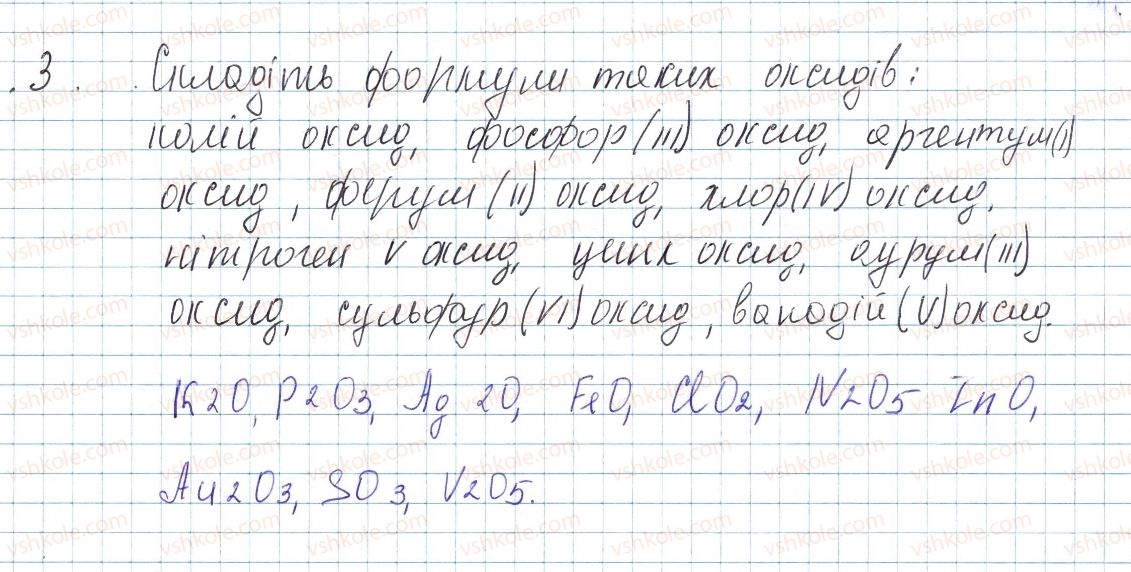 3. Складіть формули таких оксидів:
калій оксид, фосфор (III) оксид, аргентум(I)
оксид, ферум (II) оксид, хлор(IV) оксид,
нітроген V оксид, цинк оксид, аурум(III)
оксид, сульфур (VI) оксид, ванадій (V) оксид.
K2O, P2O3, Ag2O, FeO, ClO2, N2O5 ZnO,
Au2O3, SO3, V2O5.